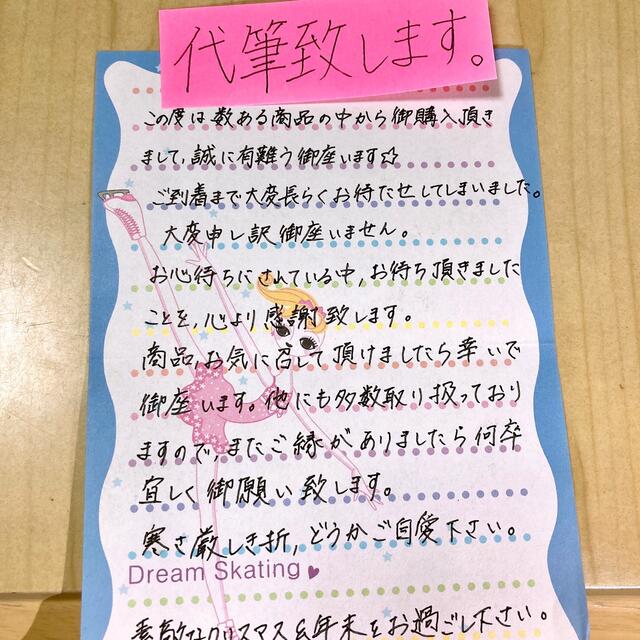 代筆致します。
この度は数ある商品の中から御購入頂き
まして、誠に有難う御座います☆
ご到着まで大変長らくお待たせしてしまいました。
大変申し訳御座いません。
お心待ちにされている中、お待ち頂きました
ことを、心より感謝致します。
商品、お気に召して頂けましたら幸いで
御座います。他にも多数取り扱っており
ますので、またご縁がありましたら何卒
宜しく御願い致します。
寒さ厳しき折、どうかご自愛下さい。
Dream Skating
素敵なクリスマス&年末をお過ごし下さい。